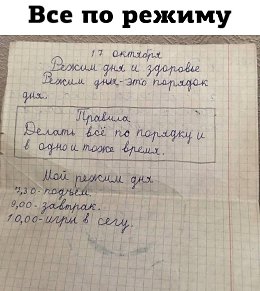 Все по режиму
17 октября
Режим дня и здоровье
Режим дня-это порядок
дня.
Правила
Делать всё по порядку и
в одно и тоже время.
Мой режим дня
7,30-подъём.
9,00-завтрак.
10,00-игры в сегу.